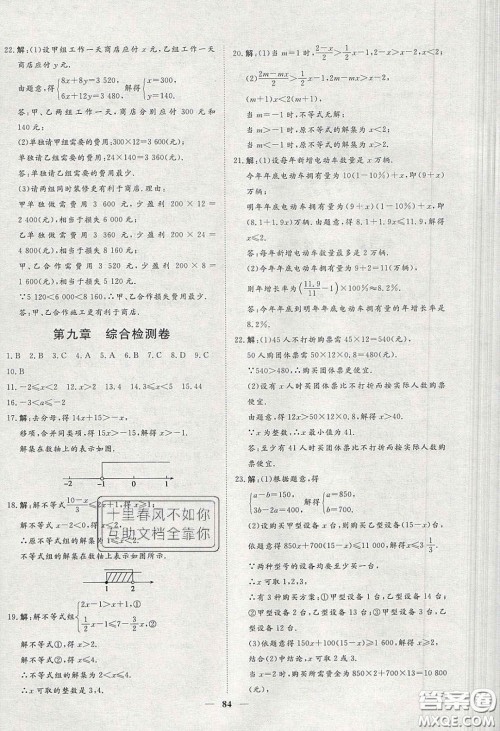 22.解:(1)设甲组工作一天商店应付x元,乙组工作一天
商店应付y元.
由题意,得{8x+8y=3 520, 解得{x=300,
6x+12y=3 480, y=140.
答:甲、乙两组工作一天,商店应分别付 300 元和
140元;
(2)单独请甲组需要的费用:300×12=3 600(元).
单独请乙组需要的费用:140×24=3 360(元).
答:单独请乙组需要的费用少;
(3)请两组同时装修更有利于商店.理由如下:
甲单独做,需费用 3 600 元,少盈利 200×12=
2 400(元),相当于损失 6 000元;
乙单独做,需费用 3 360 元,少盈利 200×24=
4 800(元),相当于损失 8 160元;
甲、乙合作,需费用 3 520 元,少盈利 200×8=
1 600(元),相当于损失 5 120元;
∵5 120<6 000<8 160,∴甲、乙合作损失费用最少.
答:甲、乙合作施工更有利于商店.
第九章 综合检测卷
1.B 2.B 3.C 4.D 5.A 6.A 7.D 8.C
9.C 10.C
11.-2≤x<2 12.x>3 13.2 14.x≤1 15.44
16.-3<a≤-2
17.解:去分母,得14x+15>-x,
移项,合并同类项,得15x>-15,解得x>-1.
解集在数轴上的表示如图.
-2 -1 0 1
18.解:解不等式(10-x)/3≤2x+1,得x≥1,
解不等式
∴原不等式组的解集为
不等式组的解集在数轴上表示如图所示:
-1 0 1 2
19.解:解不等式组{2x-1>x+1,①
1/2x-1≤7-3/2x,②
解不等式①,得x>2,
解不等式②,得x≤4.
∴不等式组的解集为2<x≤4.
∴x可取的整数是3,4.
20.解:(1)当m=1时,不等式为(2-x)/2>1/2x-1,解得x<2;
(2)(2m-mx)/2>1/2x-1,2m-mx>x-2,
(m+1)x<2(m+1).
当m=-1时,不等式无解;
当m>-1时,原不等式的解集为x<2;
当m<-1时,原不等式的解集为x>2.
21.解:(1)设每年新增电动车数量是x万辆.
今年年底电动车拥有量为10(1-10%)+x,即(9+x)
万辆;
明年年底电动车拥有量为(9+x)(1-10%)+x,即
(8.1+1.9x)万辆.由题意,得8.1+1.9x≤11.9,解
得x≤2.
答:每年新增电动车数量最多是2万辆.
(2)今年年底电动车拥有量为9+2=11(万辆),
年增长率为(11.9/11-1)×100%≈8.2%.
答:今年年底到明年年底电动车拥有量的年增长率是
8.2%.
22.解:(1)45人不打折购票需45×15=675(元),
50人购团体票需50×15×0.8=600(元).
∵675>600,∴买团体票比不打折按实际人数购票
便宜.
(2)设有x人时买团体票比不打折按实际人数购票
便宜.
由题意,得15x>50×15×0.8,解得x>40.
∵x为整数,∴x的最小值为41.
答:至少要有41人时买团体票比不打折按实际人数
购票便宜.
23.解:(1)根据题意,得
{a-b=150, 解得{a=850,
36b-24a=4 800, b=700.
(2)设购买甲型设备x台,则购买乙型设备(15-x)台,
依题意得850x+700(15-x)≤11 000,解得x≤3 1/3.
∵两种型号的设备均要至少买一台,
∴x可取1,2,3,
∴有3种购买方案:①甲型设备1台,乙型设备14台;
②甲型设备2台,乙型设备13台;③甲型设备3台,乙
型设备12台.
(3)依题意得150x+100(15-x)≥1 600,解得x≥2.
结合(2)中的结论,∴x取值2或3.
当x=2时,购买所需费用为850×2+700×13=10
800(元),
84
十里春风不如你
互助文档全靠你
答案圈
MXQE.COM